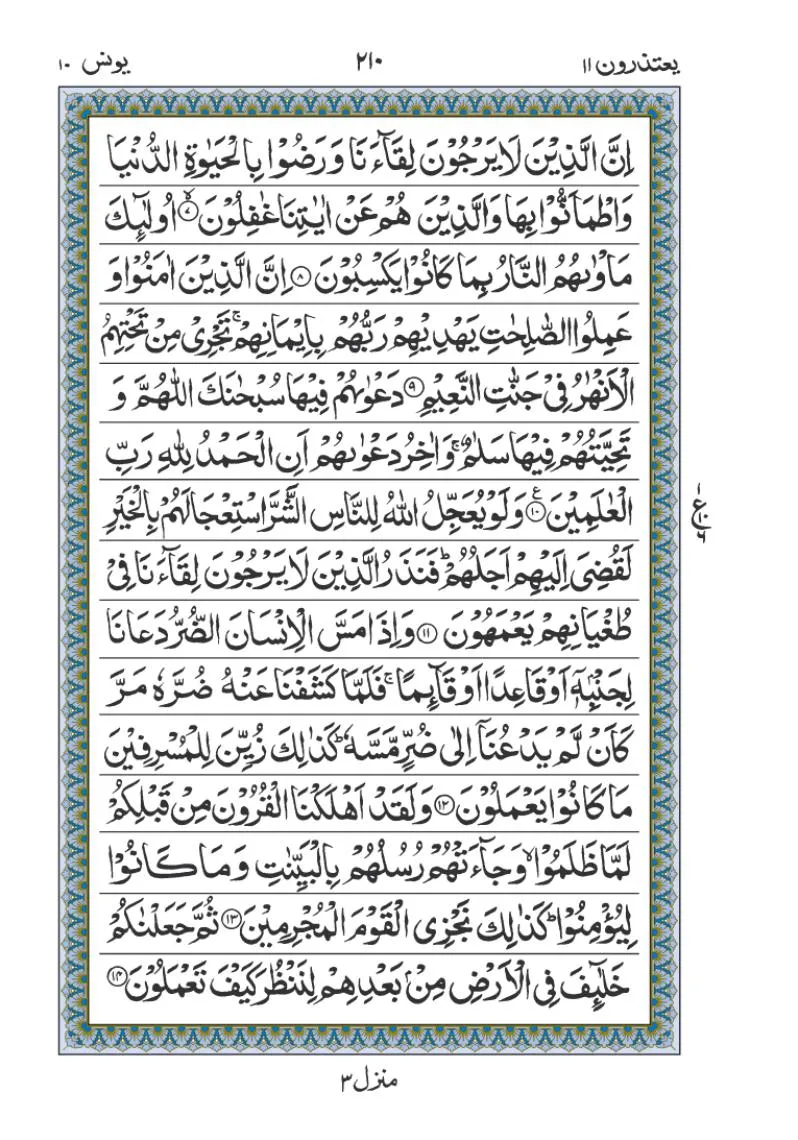 یعتذرون ۱۱ ۲۱۰ یونس ۱۰
اِنَّ الَّذِيْنَ لَا يَرْجُوْنَ لِقَآءَنَا وَرَضُوْا بِالْحَيٰوةِ الدُّنْيَا
وَاطْمَاَنُّوْا بِهَا وَالَّذِيْنَ هُمْ عَنْ اٰيٰتِنَا غٰفِلُوْنَ ۙ﴿۷﴾ اُولٰٓئِكَ
مَاْوٰىهُمُ النَّارُ بِمَا كَانُوْا يَكْسِبُوْنَ ﴿۸﴾ اِنَّ الَّذِيْنَ اٰمَنُوْا وَ
عَمِلُوا الصّٰلِحٰتِ يَهْدِيْهِمْ رَبُّهُمْ بِاِيْمَانِهِمْ ۚ تَجْرِیْ مِنْ تَحْتِهِمُ
الْاَنْهٰرُ فِیْ جَنّٰتِ النَّعِيْمِ ﴿۹﴾ دَعْوٰىهُمْ فِيْهَا سُبْحٰنَكَ اللّٰهُمَّ وَ
تَحِيَّتُهُمْ فِيْهَا سَلٰمٌ ۚ وَاٰخِرُ دَعْوٰىهُمْ اَنِ الْحَمْدُ لِلّٰهِ رَبِّ
الْعٰلَمِيْنَ ﴿۱۰﴾ ع وَلَوْ يُعَجِّلُ اللّٰهُ لِلنَّاسِ الشَّرَّ اسْتِعْجَالَهُمْ بِالْخَيْرِ
لَقُضِیَ اِلَيْهِمْ اَجَلُهُمْ ؕ فَنَذَرُ الَّذِيْنَ لَا يَرْجُوْنَ لِقَآءَنَا فِیْ
طُغْيَانِهِمْ يَعْمَهُوْنَ ﴿۱۱﴾ وَاِذَا مَسَّ الْاِنْسَانَ الضُّرُّ دَعَانَا
لِجَنْۢبِهٖۤ اَوْ قَاعِدًا اَوْ قَآئِمًا ۚ فَلَمَّا كَشَفْنَا عَنْهُ ضُرَّهٗ مَرَّ
كَاَنْ لَّمْ يَدْعُنَاۤ اِلٰى ضُرٍّ مَّسَّهٗ ؕ كَذٰلِكَ زُيِّنَ لِلْمُسْرِفِيْنَ
مَا كَانُوْا يَعْمَلُوْنَ ﴿۱۲﴾ وَلَقَدْ اَهْلَكْنَا الْقُرُوْنَ مِنْ قَبْلِكُمْ
لَمَّا ظَلَمُوْا ۙ وَجَآءَتْهُمْ رُسُلُهُمْ بِالْبَيِّنٰتِ وَمَا كَانُوْا
لِيُؤْمِنُوْا ؕ كَذٰلِكَ نَجْزِی الْقَوْمَ الْمُجْرِمِيْنَ ﴿۱۳﴾ ثُمَّ جَعَلْنٰكُمْ
خَلٰٓئِفَ فِی الْاَرْضِ مِنْۢ بَعْدِهِمْ لِنَنْظُرَ كَيْفَ تَعْمَلُوْنَ ﴿۱۴﴾
۱
ع ۱۰
۶
منزل ۳